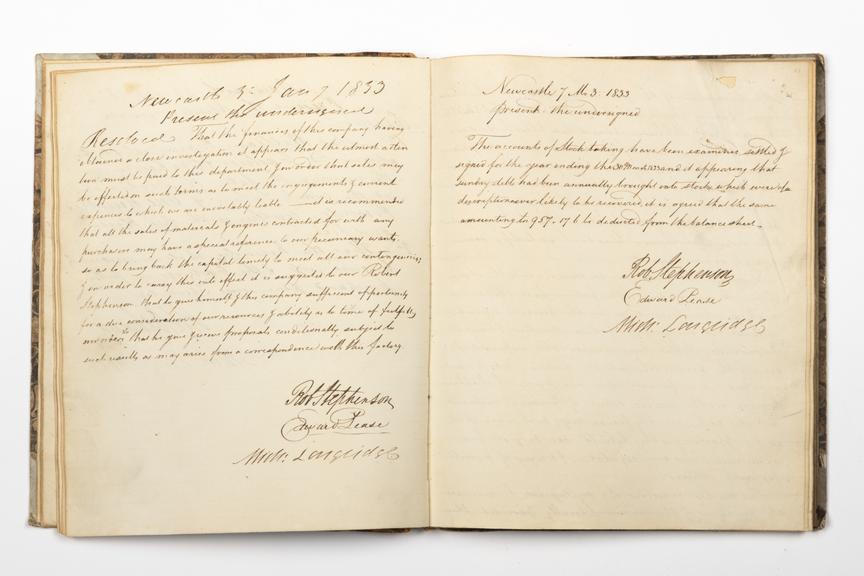 Newcastle 3 Jan 1833
Present the undersigned
Resolved That the finances of this company having
obtained a close investigation it appears that the utmost atten
tion must be paid to this department & in order that sales may
be effected on such terms as to meet the engagements & current
expences to which we are inevitably liable it is recommended
that all the sales of materials & engines contracted for with any
purchasers may have a special reference to our pecuniary wants
so as to bring back the capital timely to meet all our contingencies
& in order to carry this into effect it is suggested to our Robert
Stephenson that he give himself & this company sufficient opportunity
for a due consideration of our resources & ability as to time of fulfill,
that he give proposals conditionally subject to
such results as may arise from a correspondence with this factory
Rob Stephenson
Edward Pease
Mich. Longridge
Newcastle 7 Mo 3 1833
present the undersigned
The accounts of Stock taking have been examined settled &
signed for the year ending the and it appearing that
sundry debts had been annually brought into stock which were of a
description never likely to be recovered it is agreed that the same
amounting to 957.17 6 be deducted from the balance sheet
Rob Stephenson
Edward Pease
Mich. Longridge